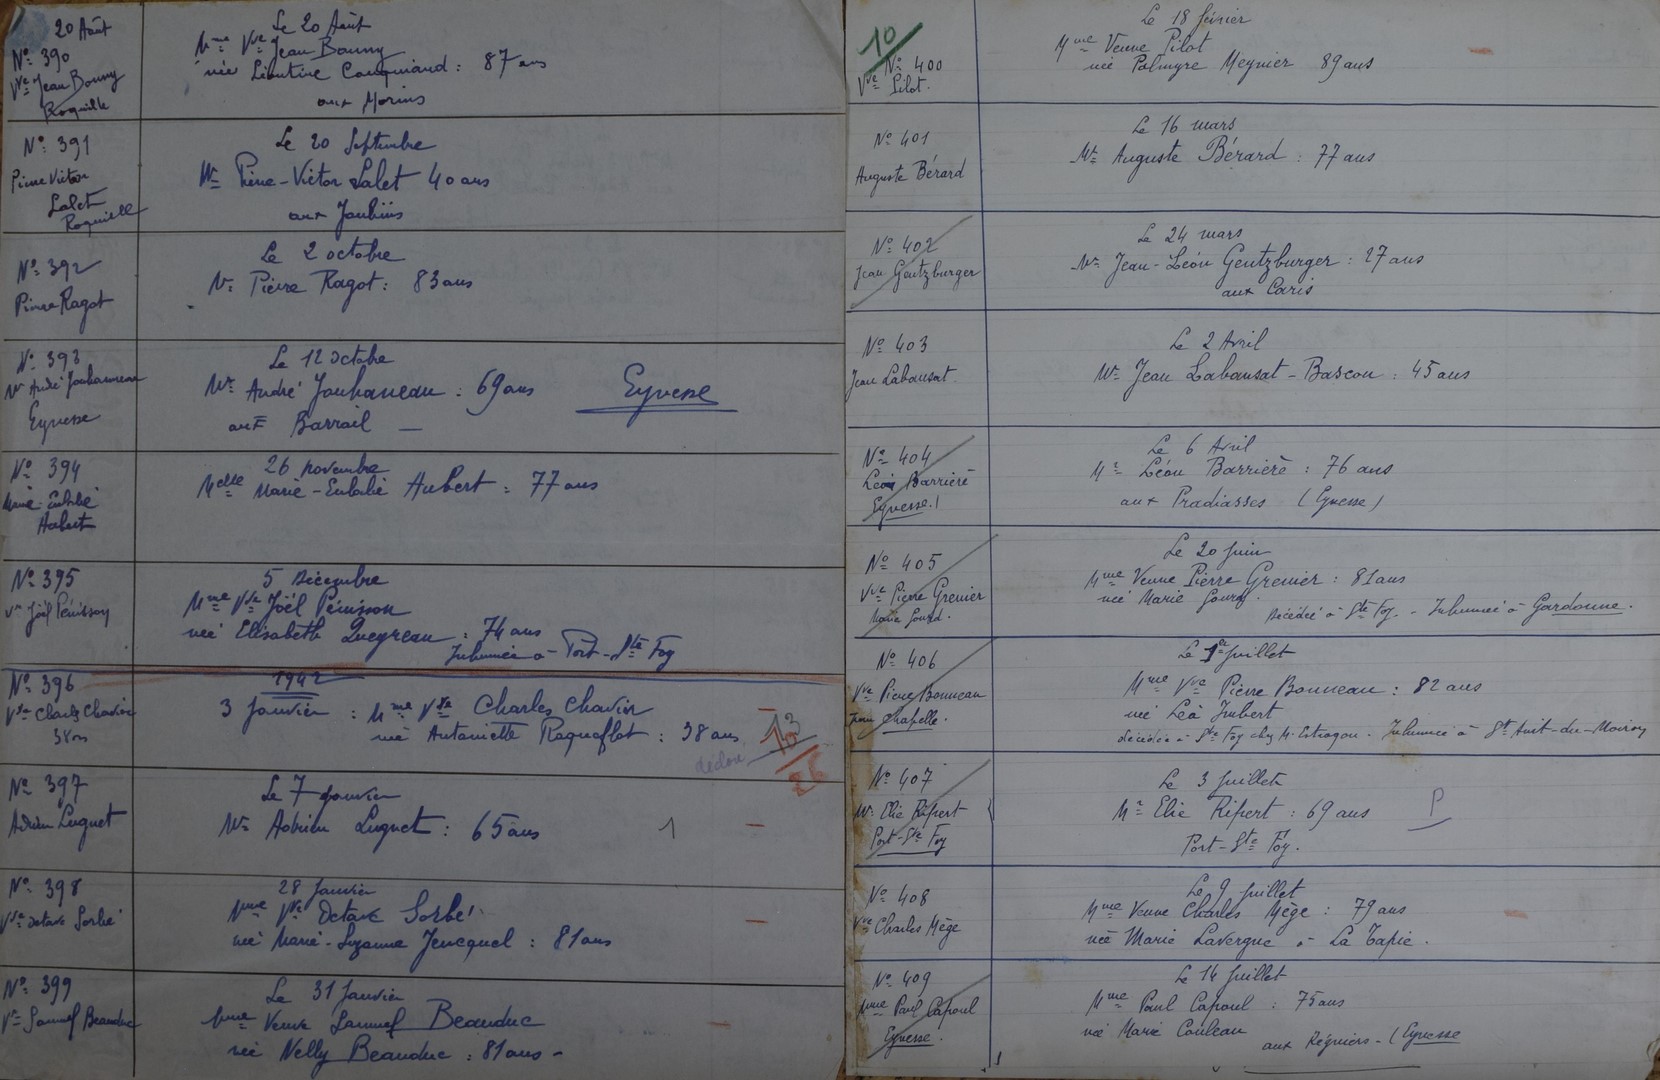 20 Août
N° 390
Vve Jean Bouny
Roquille
Le 20 Août
Mme Vve Jean Bouny
née Léontine Conquiaud : 87 ans
aux Morins
N° 391
Pierre Victor
Lalet
Roquille
Le 20 Septembre
Mr Pierre-Victor Lalet 40 ans
aux
N° 392
Pierre Ragot
Le 2 octobre
Mr Pierre Ragot : 83 ans
N° 393
Mr André Jouhanneau
Eynesse
Le 12 octobre
Mr André Jouhaneau : 69 ans Eynesse
aux Barrail —
N° 394
Marie-Eulalie
Aubert
26 novembre
Melle Marie-Eulalie Aubert : 77 ans
N° 395
Vve Joël Pénisson
5 Décembre
Mme Vve Joël Pénisson
née Elisabeth Queyreau : 74 ans
Inhumée à Port-Ste Foy
N° 396
Vve Charles Chavier
38 ans
1942
3 Janvier : Mme Vve Charles Chavier
née Antoinette Roqueflot : 38 ans
13
26
N° 397
Adrien Luguet
Le 7 Janvier
Mr Adrien Luguet : 65 ans 1
N° 398
Vve Octave Sorbé
28 Janvier
Mme Vve Octave Sorbé
née Marie-Suzanne Jeucquel : 81 ans
N° 399
Vve Samuel Beauduc
Le 31 Janvier
Mme Veuve Samuel Beauduc
née Nelly Beauduc : 81 ans -
10
N° 400
Vve Pilot.
Le 18 février
Mme Veuve Pilot
née Palmyre Meynier 89 ans
N° 401
Auguste Bérard
Le 16 mars
Mr Auguste Bérard : 77 ans
N° 402
Jean Gentzburger
Le 24 mars
Mr Jean-Léon Gentzburger : 27 ans
aux Caris
N° 403
Jean Labansat
Le 2 Avril
Mr Jean Labansat-Bascou : 45 ans
N° 404
Léon Barrière
Eynesse.)
Le 6 Avril
Mr Léon Barrière : 76 ans
aux Pradiasses (Eynesse)
N° 405
Vve Pierre Grenier
Marie Gourd.
Le 20 juin
Mme Veuve Pierre Grenier : 81 ans
née Marie Gourd.
Décédée à Ste Foy. - Inhumée à Gardonne.
N° 406
Vve Pierre Bonneau
Chapelle.
Le 1er juillet
Mme Vve Pierre Bonneau : 82 ans
née Léà Imbert
décédée à Ste Foy chez M. Estrogou. Inhumée à St Avit-du-Moiron
N° 407
Mr Elie Ripert
Port-Ste Foy
Le 3 juillet
Mr Elie Ripert : 69 ans P
Port-Ste Foy.
N° 408
Vve Charles Mège
Le 9 juillet
Mme Veuve Charles Mège : 79 ans
née Marie Lavergne à La Tapie.
N° 409
Mme Paul Capoul
Eynesse.
Le 14 juillet
Mme Paul Capoul : 75 ans
née Marie Couleau
aux Régniers - (Eynesse